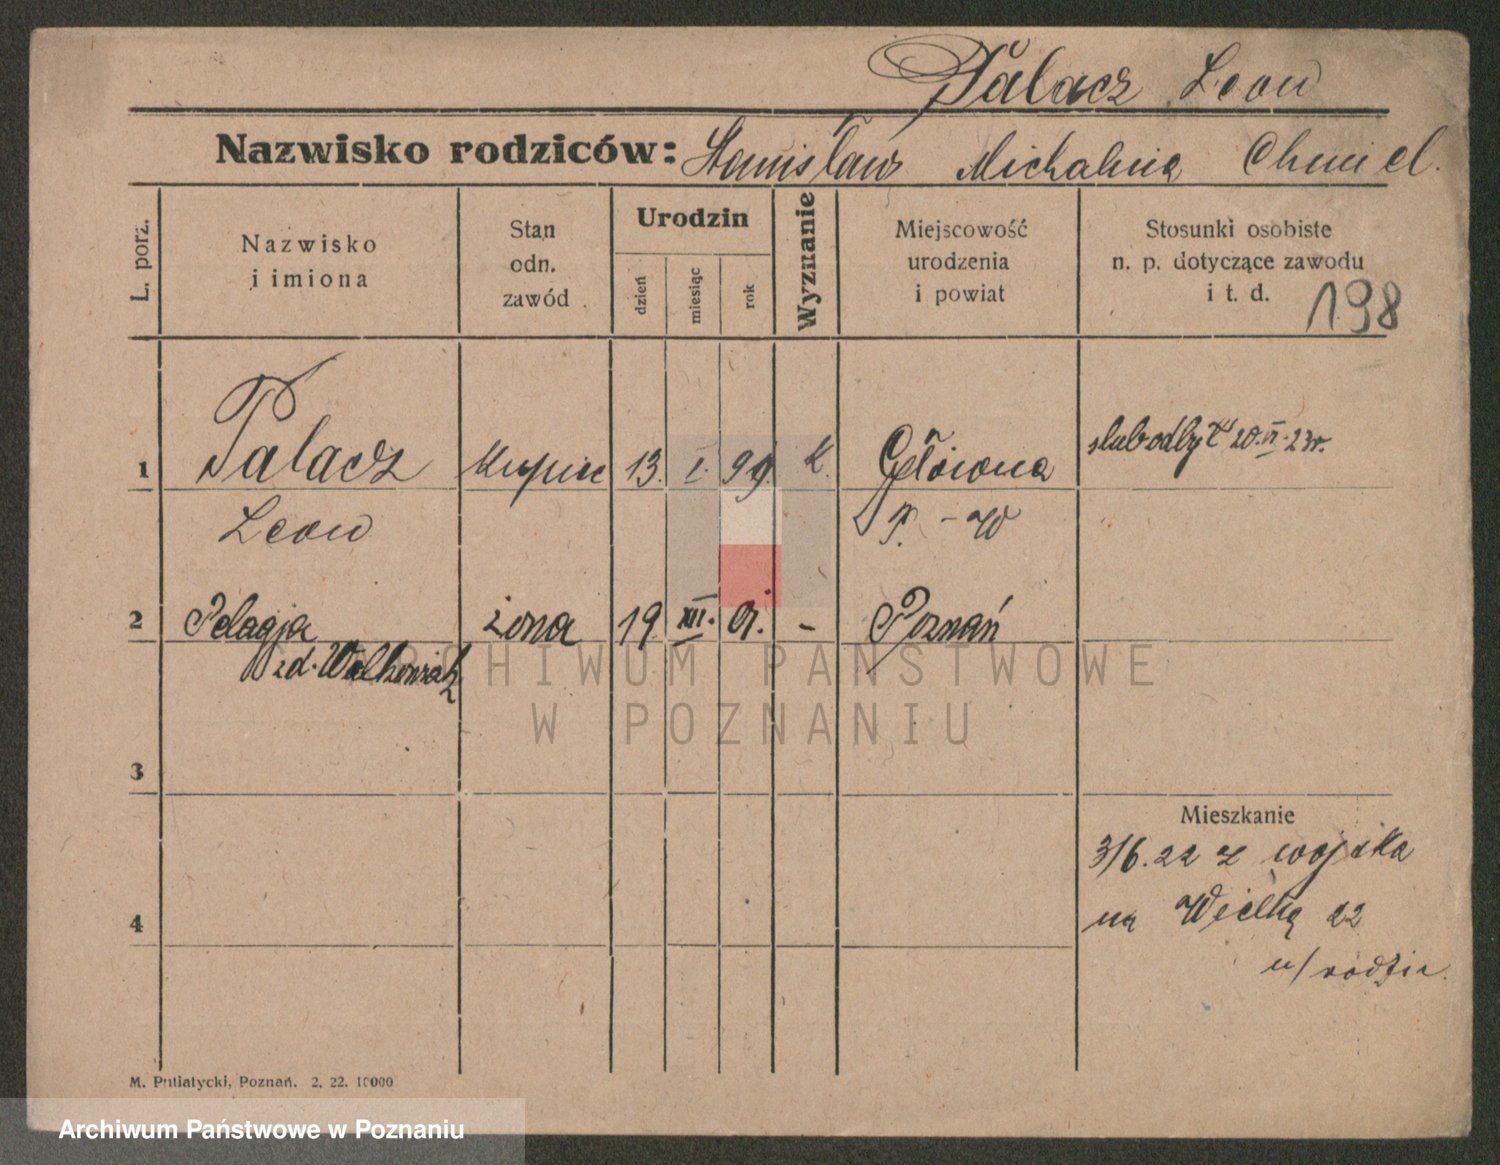 Pałacz Leon
Nazwisko rodziców: Stanisław Michalina Chmiel.
L. porz.
Nazwisko
i imiona
Stan
odn.
zawód
Urodzin
dzień
miesiąc
rok
Wyznanie
Miejscowość
urodzenia
i powiat
Stosunki osobiste
n. p. dotyczące zawodu
i t. d.
198
1 Pałacz kupiec 13. I. 99. K. Główna ślub odbył 20.VI.23r.
Leon P. - W
2 Pelagja żona 19 XII. 01. - Poznań
zd.
ARCHIWUM PAŃSTWOWE
W POZNANIU
3
Mieszkanie
3/6.22 z wojska
4
na Wielką 22
u/rodzic.
M. Putiatycki, Poznań. 2. 22. 10000
Archiwum Państwowe w Poznaniu